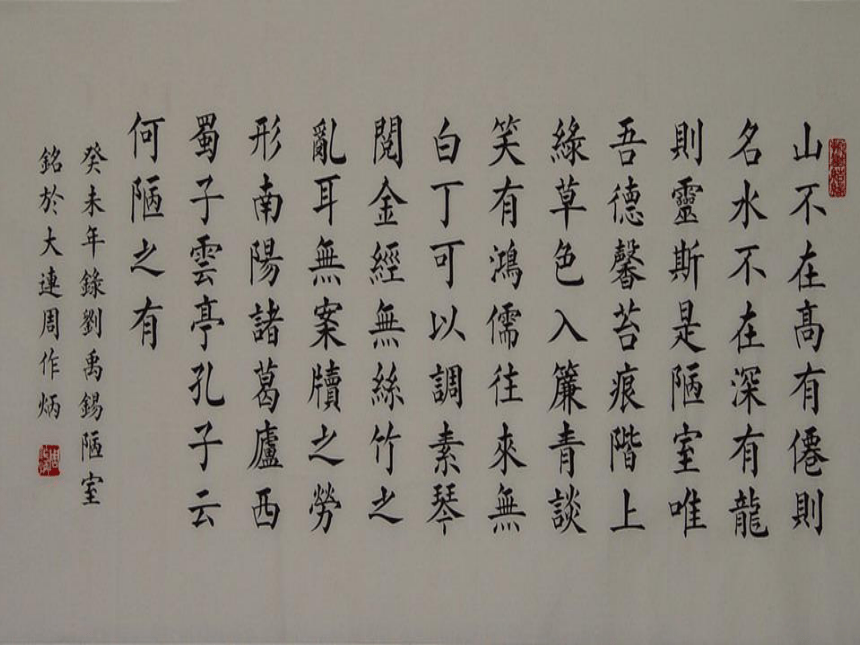 山不在高有僊則
名水不在深有龍
則靈斯是陋室唯
吾德馨苔痕階上
綠草色入簾青談
笑有鴻儒往來無
白丁可以調素琴
閱金經無絲竹之
亂耳無案牘之勞
形南陽諸葛廬西
蜀子雲亭孔子云
何陋之有
癸未年錄劉禹錫陋室
銘於大連周作炳